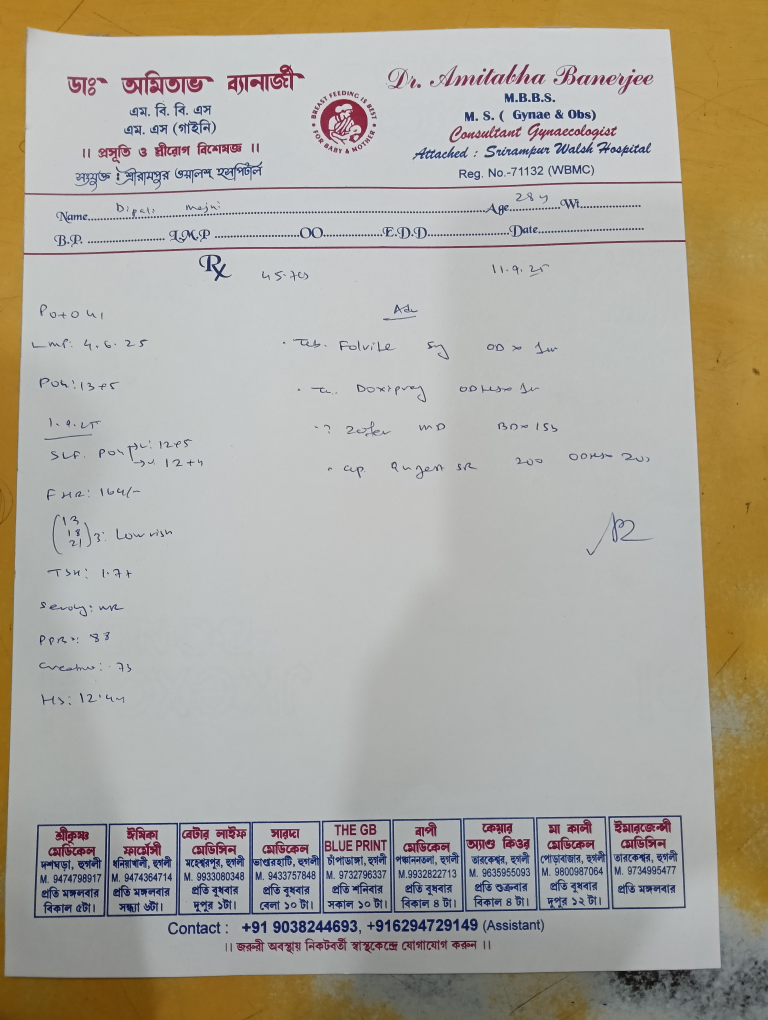 ডাঃ অমিতাভ ব্যানার্জী
এম. বি. বি. এস
এম. এস (গাইনি)
।। প্রসূতি ও স্ত্রীরোগ বিশেষজ্ঞ ।।
সংযুক্ত : শ্রীরামপুর ওয়ালশ হসপিটাল
BREAST FEEDING IS BEST FOR BABY & MOTHER
Dr. Amitabha Banerjee
M.B.B.S.
M. S. ( Gynae & Obs)
Consultant Gynaecologist
Attached : Srirampur Walsh Hospital
Reg. No.-71132 (WBMC)
Name Age 28y Wt
B.P. L.M.P OO E.D.D Date
Rx 11.9.25
Adv
LMP: 4.6.25
POG: 13+5
1.9.25
12+5
12+4
FHR: 164/-
13
18
21
3: Low risk
TSH: 1.7+
PPBS: 88
HB: 12.44
Tab. Folvite 5mg OD x 1m
Doxipreg
MD BD x 15D
Cap. SR 200
শ্রীকৃষ্ণ মেডিকেল
দশঘড়া, হুগলী
M. 9474798917
প্রতি মঙ্গলবার
বিকাল ৫টা।
ঈষিকা ফার্মেসী
ধনিয়াখালী, হুগলী
M. 9474364714
প্রতি মঙ্গলবার
সন্ধ্যা ৬টা।
বেটার লাইফ মেডিসিন
মহেশ্বরপুর, হুগলী
M. 9933080348
প্রতি বুধবার
দুপুর ১টা।
সারদা মেডিকেল
ভাণ্ডারহাটি, হুগলী
M. 9433757848
প্রতি বুধবার
বেলা ১০ টা।
THE GB BLUE PRINT
চাঁপাডাঙ্গা, হুগলী
M. 9732796337
প্রতি শনিবার
সকাল ১০ টা।
বাপী মেডিকেল
পঞ্চাননতলা, হুগলী
M.9932822713
প্রতি বুধবার
বিকাল ৪ টা।
কেয়ার অ্যাণ্ড কিওর
তারকেশ্বর, হুগলী
M. 9635955093
প্রতি শুক্রবার
বিকাল ৪ টা।
মা কালী মেডিকেল
পোড়াবাজার, হুগলী
M. 9800987064
প্রতি বুধবার
দুপুর ১২ টা।
ইমারজেন্সী মেডিসিন
তারকেশ্বর, হুগলী
M. 9734995477
প্রতি মঙ্গলবার
Contact : +91 9038244693, +916294729149 (Assistant)
।। জরুরী অবস্থায় নিকটবর্তী স্বাস্থ্যকেন্দ্রে যোগাযোগ করুন ।।